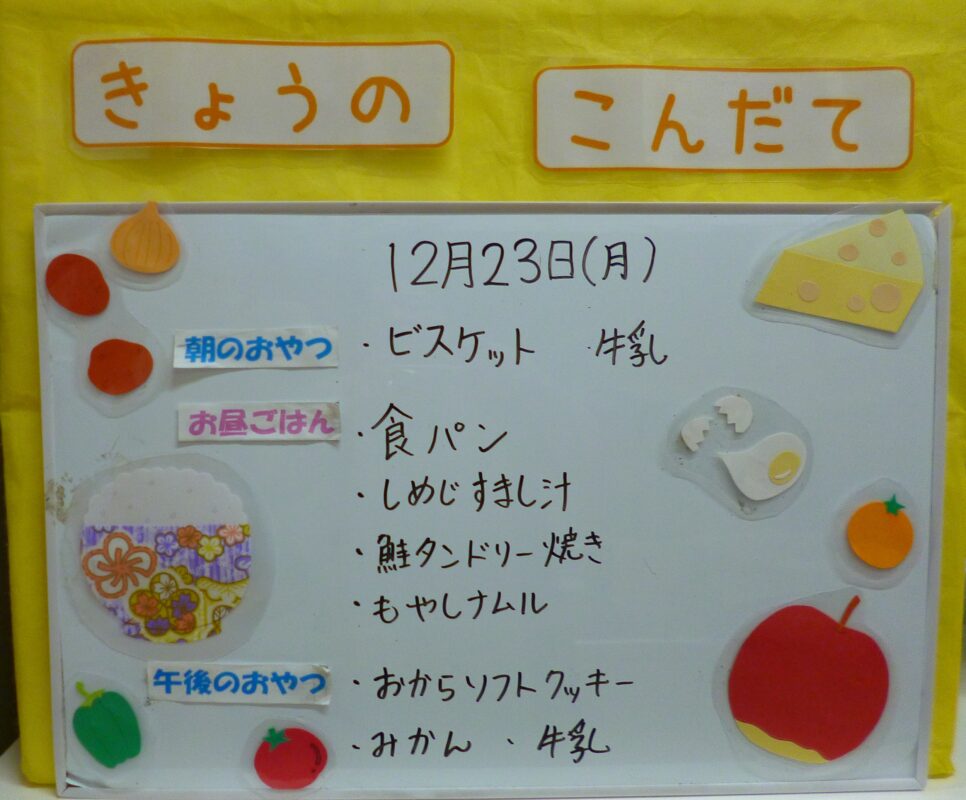 きょうの こんだて
12月23日(月)
朝のおやつ ・ビスケット ・牛乳
お昼ごはん ・食パン
・しめじすまし汁
・鮭タンドリー焼き
・もやしナムル
午後のおやつ ・おからソフトクッキー
・みかん ・牛乳